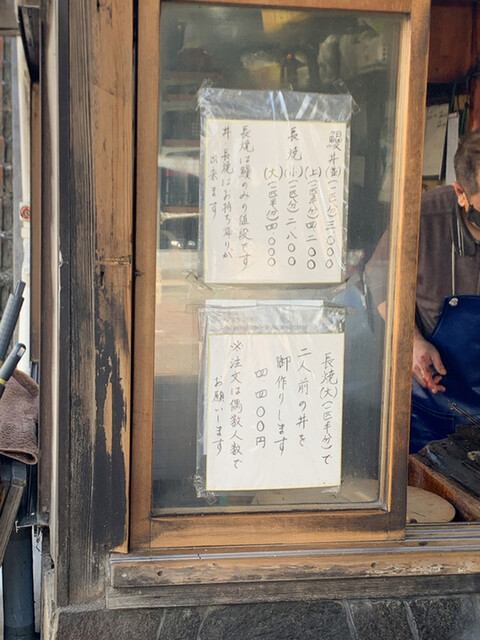 鰻丼(並)(一匹分)三、〇〇〇
(上)(一匹半分)四二〇〇
長焼(小)(一匹分)二、八〇〇
(大)(一匹半分)四〇〇〇
長焼は鰻のみの値段です
丼、長焼はお持ち帰りが
出来ます
長焼(大)(一匹半分)で
二人前の丼を
御作りします
四四〇〇円
※注文は偶数人数で
お願いします